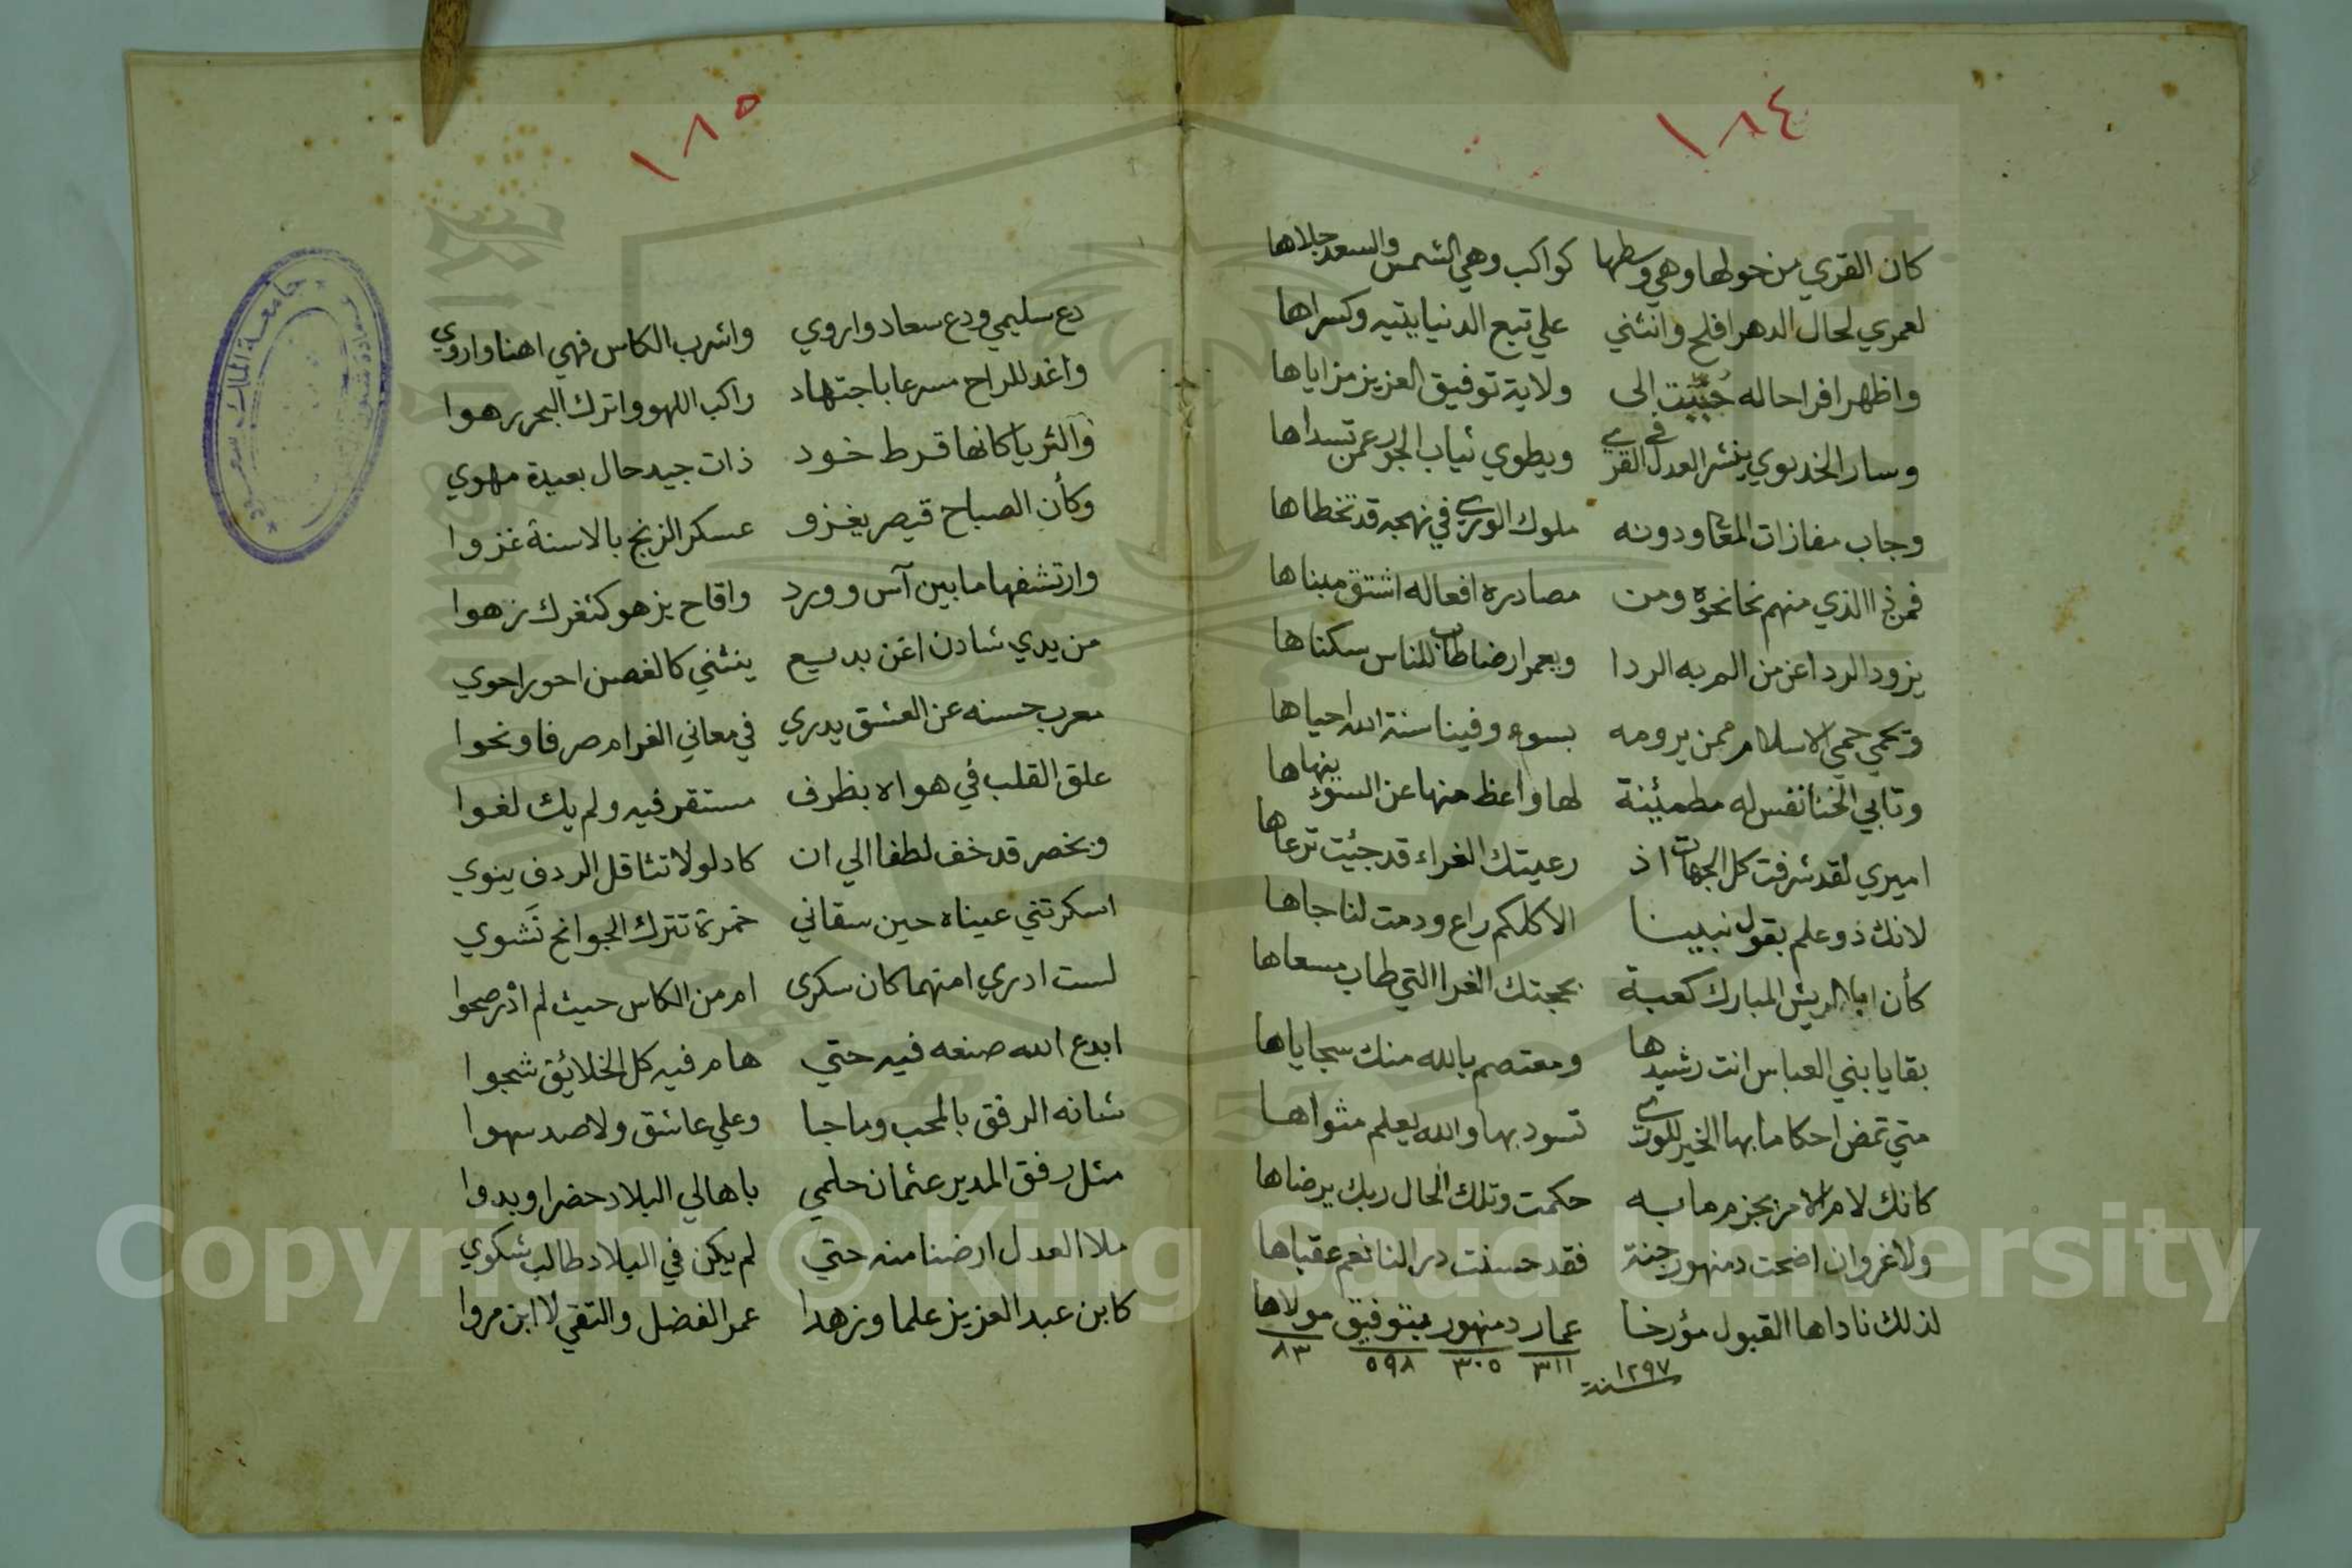 ١٨٤
كان القري من حولها وهي وسطها كواكب وهي الشمس والسعد جلاها
لعمري لحال الدهر افلح وانثني علي تبع الدنيا يتيه وكسراها
واظهر افراحا له حببت الى ولاية توفيق العزيز مزاياها
وسار الخديوي ينشر العدل في القرى ويطوي ثياب الجور عمن تسداها
وجاب مفازات المعالي ودونه ملوك الورى في نهجه قد تخطاها
فمن ذا الذي منهم نحا نحوه ومن مصادره افعاله اشتق مبناها
يزود الردا عن من الم به الردا ويعمر ارضا طاب للناس سكناها
ويحمي حمي الاسلام ممن يرومه بسوء وفينا سنة الله احياها
وتابي الخنا نفس له مطمئنة لها واعظ منها عن السوء ينهاها
اميري لقد شرفت كل الجهات اذ رعيتك الغراء قد جئت ترعاها
لانك ذو علم بقول نبينا الا كلكم راع ودمت لنا جاها
كأن ابا الريش المبارك كعبة بحجتك الغرا التي طاب مسعاها
بقايا بني العباس انت رشيدها ومعتصم بالله منك سجاياها
متي تمض احكاما بها الخير للورى تسود بها والله يعلم مثواها
كانك لام الامر بجزم ما به حكمت وتلك الحال ربك يرضاها
ولا غروان اضحت دمنهور جنة فقد حسنت در النا نعم عقباها
لذلك ناداها القبول مؤرخا عمار دمنهور بتوفيق مولاها
٣١١ ٣٠٥ ٥٩٨ ٨٣
سنة ١٢٩٧
١٨٥
دع سليمي ودع سعاد واروي واشرب الكاس فهي اهنا واروي
واغد للراح مسرعا باجتهاد راكب اللهو واترك البحر رهوا
والثريا كانها قرط خود ذات جيد حال بعيدة مهوي
وكأن الصباح قيصر يغزو عسكر الزنج بالاسنة غزوا
وارتشفها ما بين آس وورد واقاح يزهو كثغرك زهوا
من يدي شادن اغن بديع ينثني كالغصن احور احوي
معرب حسنه عن العشق يدري في معاني الغرام صرفا ونحوا
علق القلب في هواه بظرف مستقر فيه ولم يك لغوا
وبخصر قد خف لطفا الي ان كاد لولا تثاقل الردف ينوي
اسكرتني عيناه حين سقاني خمرة تترك الجوانح نشوي
لست ادري امنهما كان سكرى ام من الكاس حيث لم ادر صحوا
ابدع الله صنعه فيه حتي هام فيه كل الخلائق شجوا
شانه الرفق بالمحب وما جا وعلي عاشق ولا صد سهوا
مثل رفق المدير عثمان حلمي باهالي البلاد حضرا وبدوا
ملا العدل ارضنا منه حتي لم يكن في البلاد طالب شكوي
كابن عبد العزيز علما وزهدا عمر الفضل والتقي لا ابن مروا
جامعة الملك سعود
Copyright © King Saud University
1957